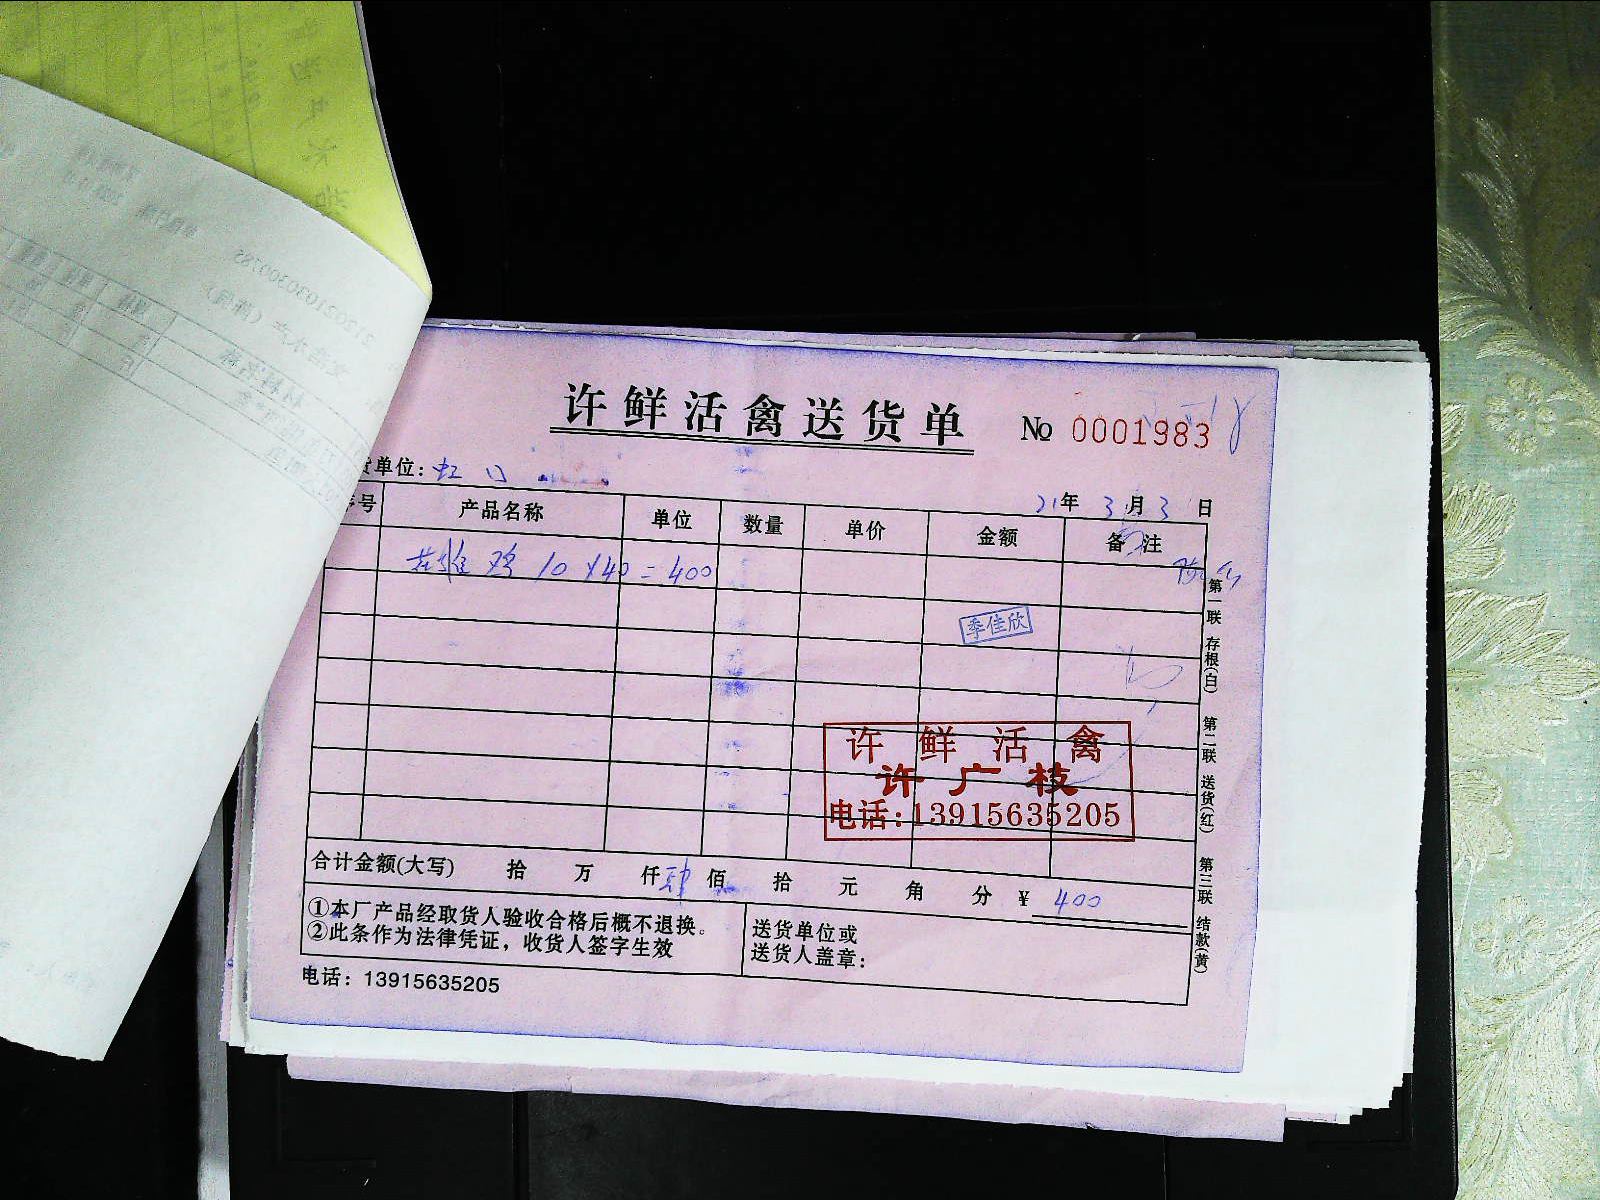 许鲜活禽送货单
№ 0001983
货单位：虹口
21年 3月 3日
号 产品名称 单位 数量 单价 金额 备注
鸡 10 × 40 = 400
季佳欣
许鲜活禽
许广枝
电话：13915635205
合计金额(大写) 拾 万 仟 肆 佰 拾 元 角 分 ¥ 400
①本厂产品经取货人验收合格后概不退换。
②此条作为法律凭证，收货人签字生效
送货单位或
送货人盖章：
电话：13915635205
第一联 存根(白) 第二联 送货(红) 第三联 结款(黄)